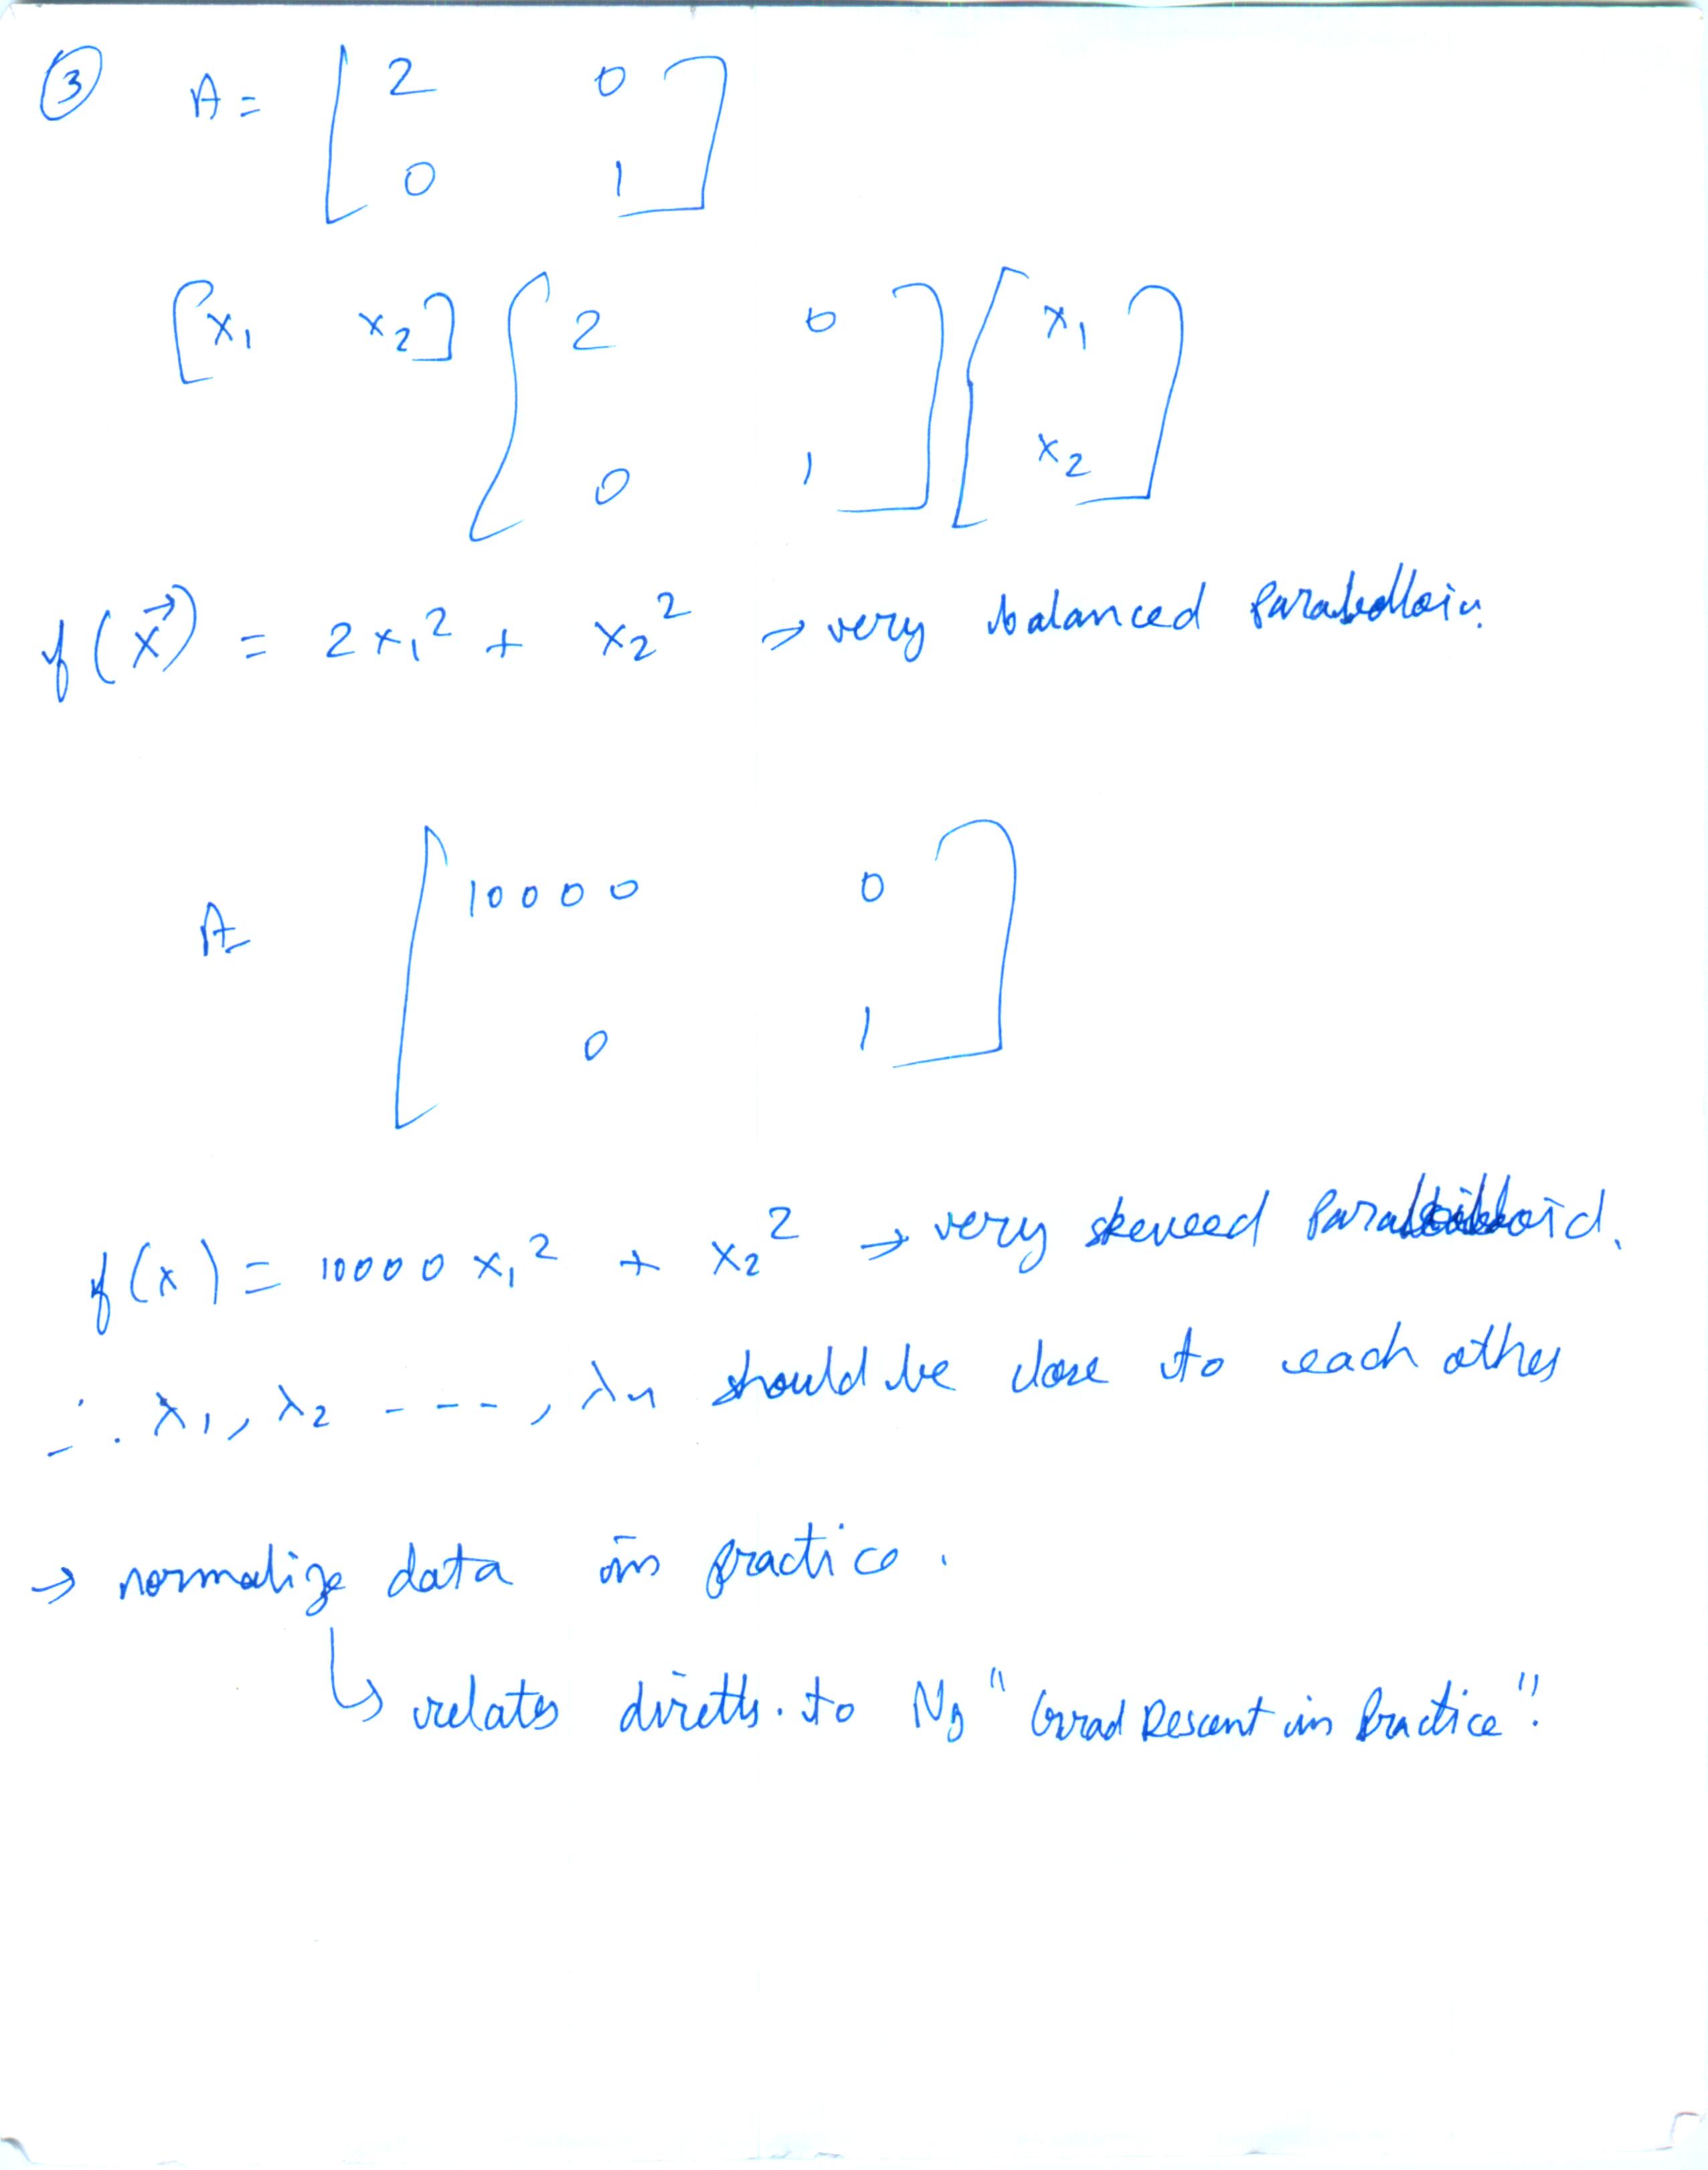 ③ A = [ 2 0
0 1 ]
[x₁ x₂] [ 2 0 ] [ x₁ ]
0 1 x₂
f(x⃗) = 2x₁² + x₂² → very balanced
A [ 10000 0
0 1 ]
f(x) = 10000 x₁² + x₂² → very skeweed
∴ λ₁, λ₂ ----, λn should be close to each other
→ normalize data in practice.
↳ relates to Ng "Grad Descent in Practice".